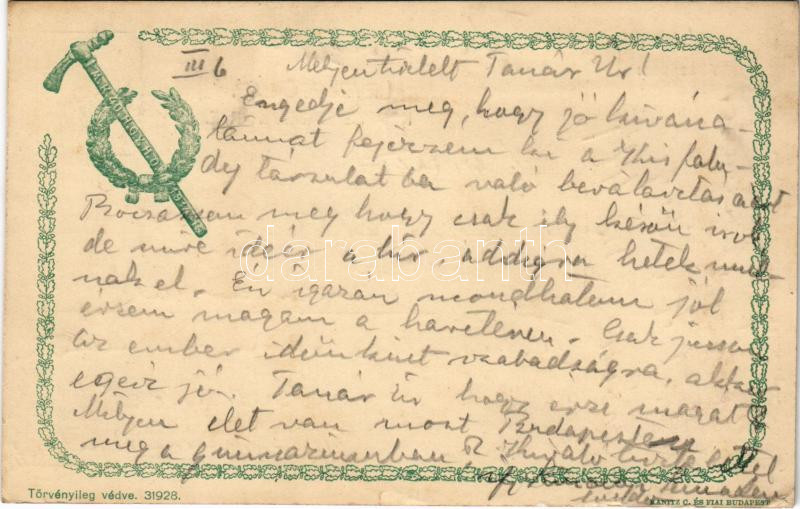 III 6
Mélyen tisztelt Tanár Úr!
Engedje meg, hogy jó kívána-
taimat fejezzem ki a Kisfalu-
dy társulatba való beválasztásáért
Bocsásson meg hogy csak ily későn írok
de mire ideér a hír, addigra hetek mul-
nak el. Én igazán mondhatom jól
érzem magam a harctéren. Csak jusson
az ember időnkint szabadságra, akkor
egész jó. Tanár Úr hogy érzi magát?
Milyen élet van most Budapesten
meg a gimnáziumban?
darabanth
Törvényileg védve. 31928.
KANITZ C. ÉS FIAI BUDAPEST